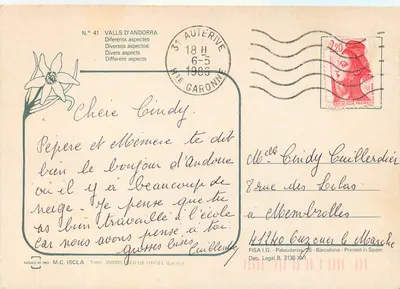 N.º 41 VALLS D'ANDORRA
Diferents aspectes
Diversos aspectos
Divers aspects
Different aspects
31 AUTERIVE
18 H
6-5
1986
HTE GARONNE
2,20
Chère Cindy.
Pépère et Mémère te dit
bien le bonjour d'Andorre
où il y à beaucoup de
neige. Je pense que tu
as bien travaillé à l'école
car nous avons pensé à toi.
grosses bises
Cuillerdier
Melle Cindy Cuillerdier
8 rue des Lilas
à Membrolles
41240 Ouzouer le Marché
FISA I.G. - Palaudarias, 26 - Barcelona - Printed in Spain
Dep. Legal B. 3138-XVI
M.C. ISCLA